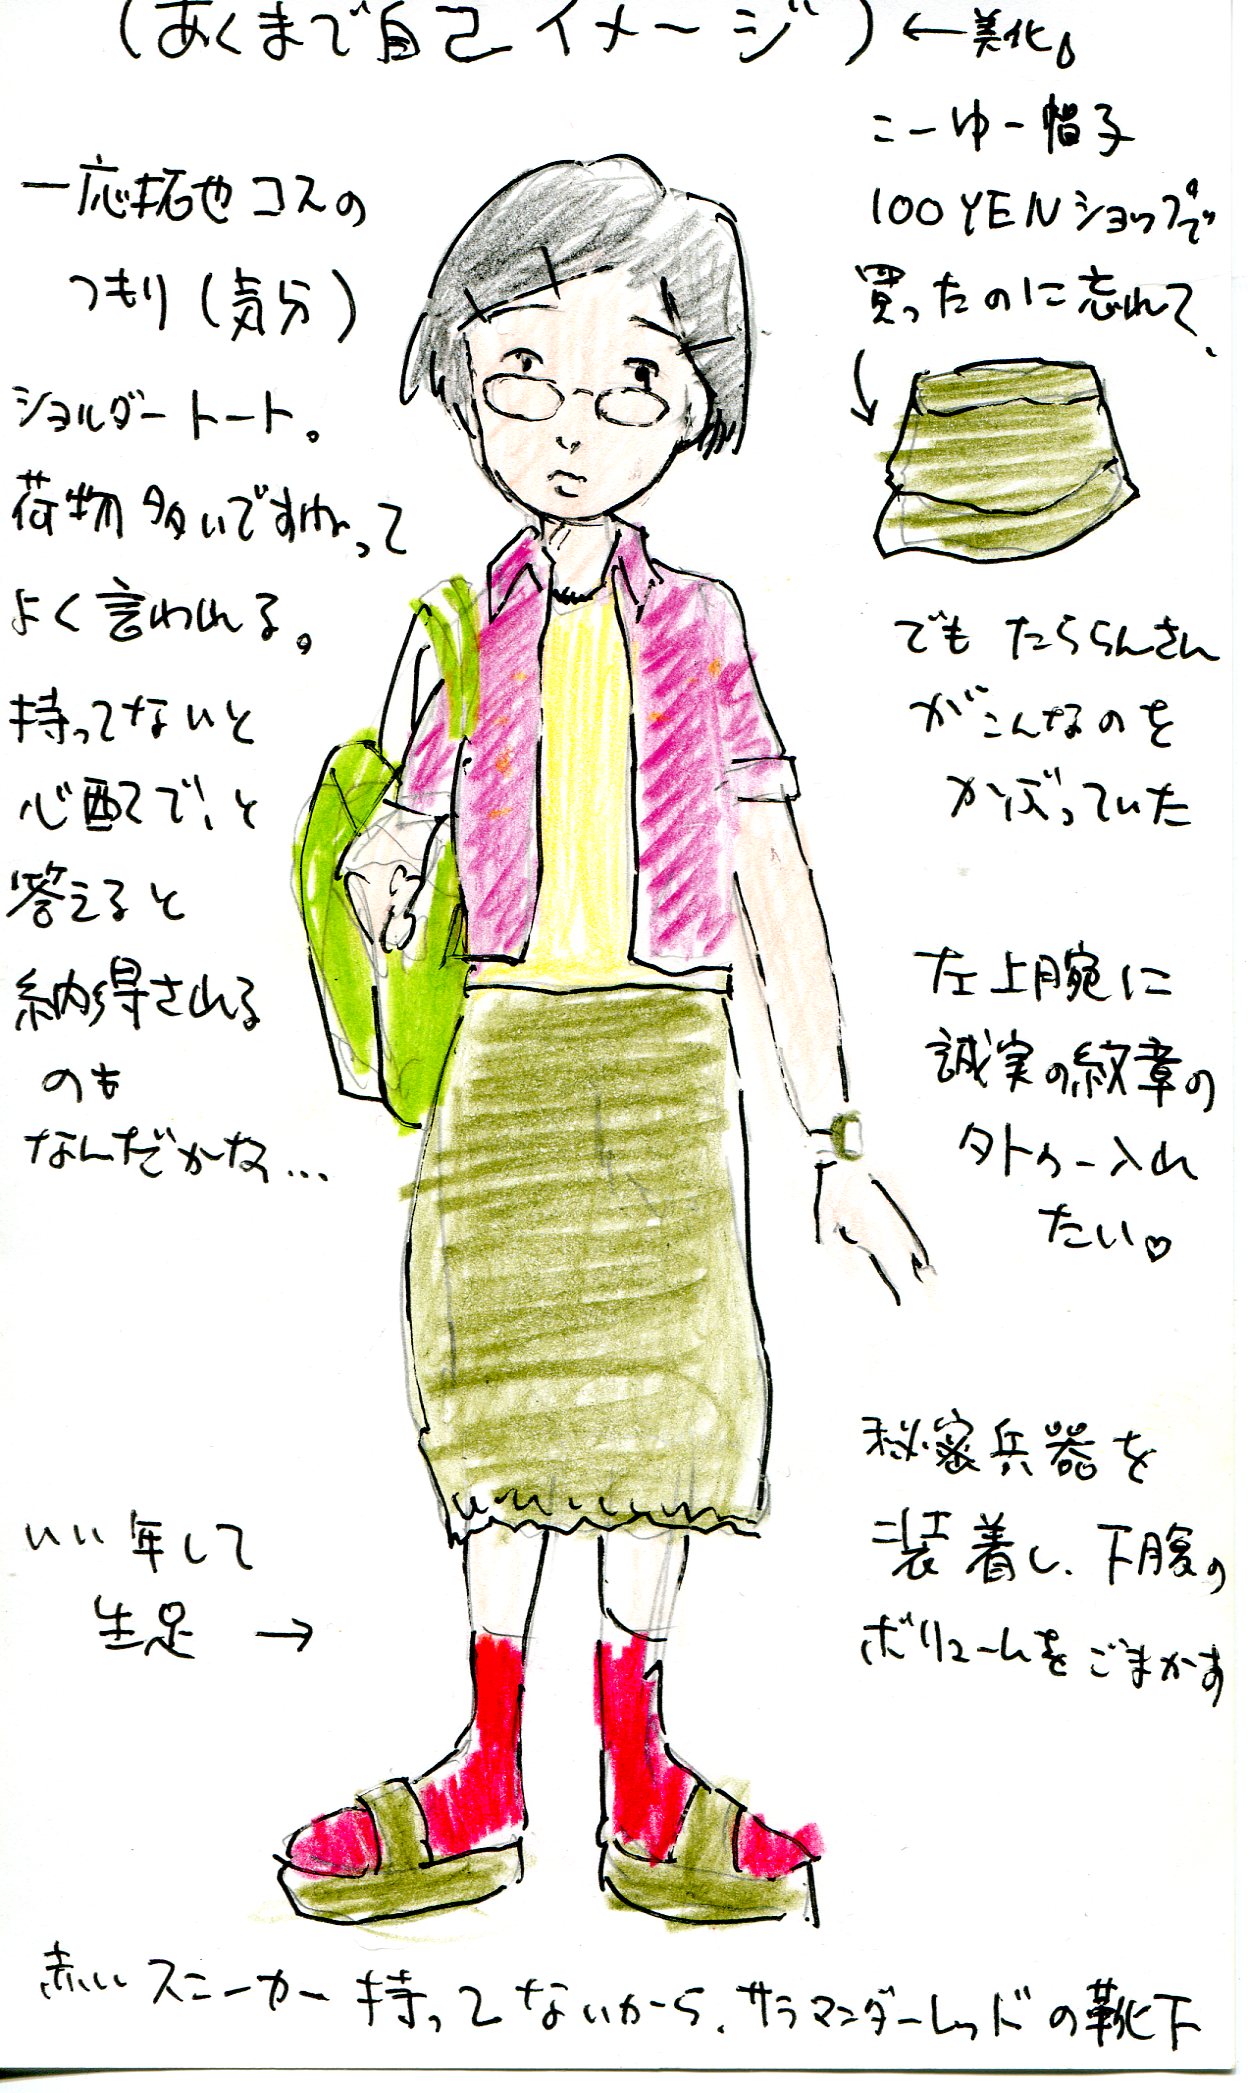 (あくまで自己イメージ) ←美化。
一応拓也コスの
つもり(気分)
ショルダートート。
荷物多いですねって
よく言われる。
持ってないと
心配で、と
答えると
納得される
のも
なんだかな…
いい年して
生足 →
こーゆー帽子
100YENショップで
買ったのに忘れて、
でも たららんさん
がこんなのを
かぶっていた
左上腕に
誠実の紋章の
タトゥー入れ
たい♡
秘密兵器を
装着し、下腹の
ボリュームをごまかす
赤いスニーカー持ってないから、サラマンダーレッドの靴下